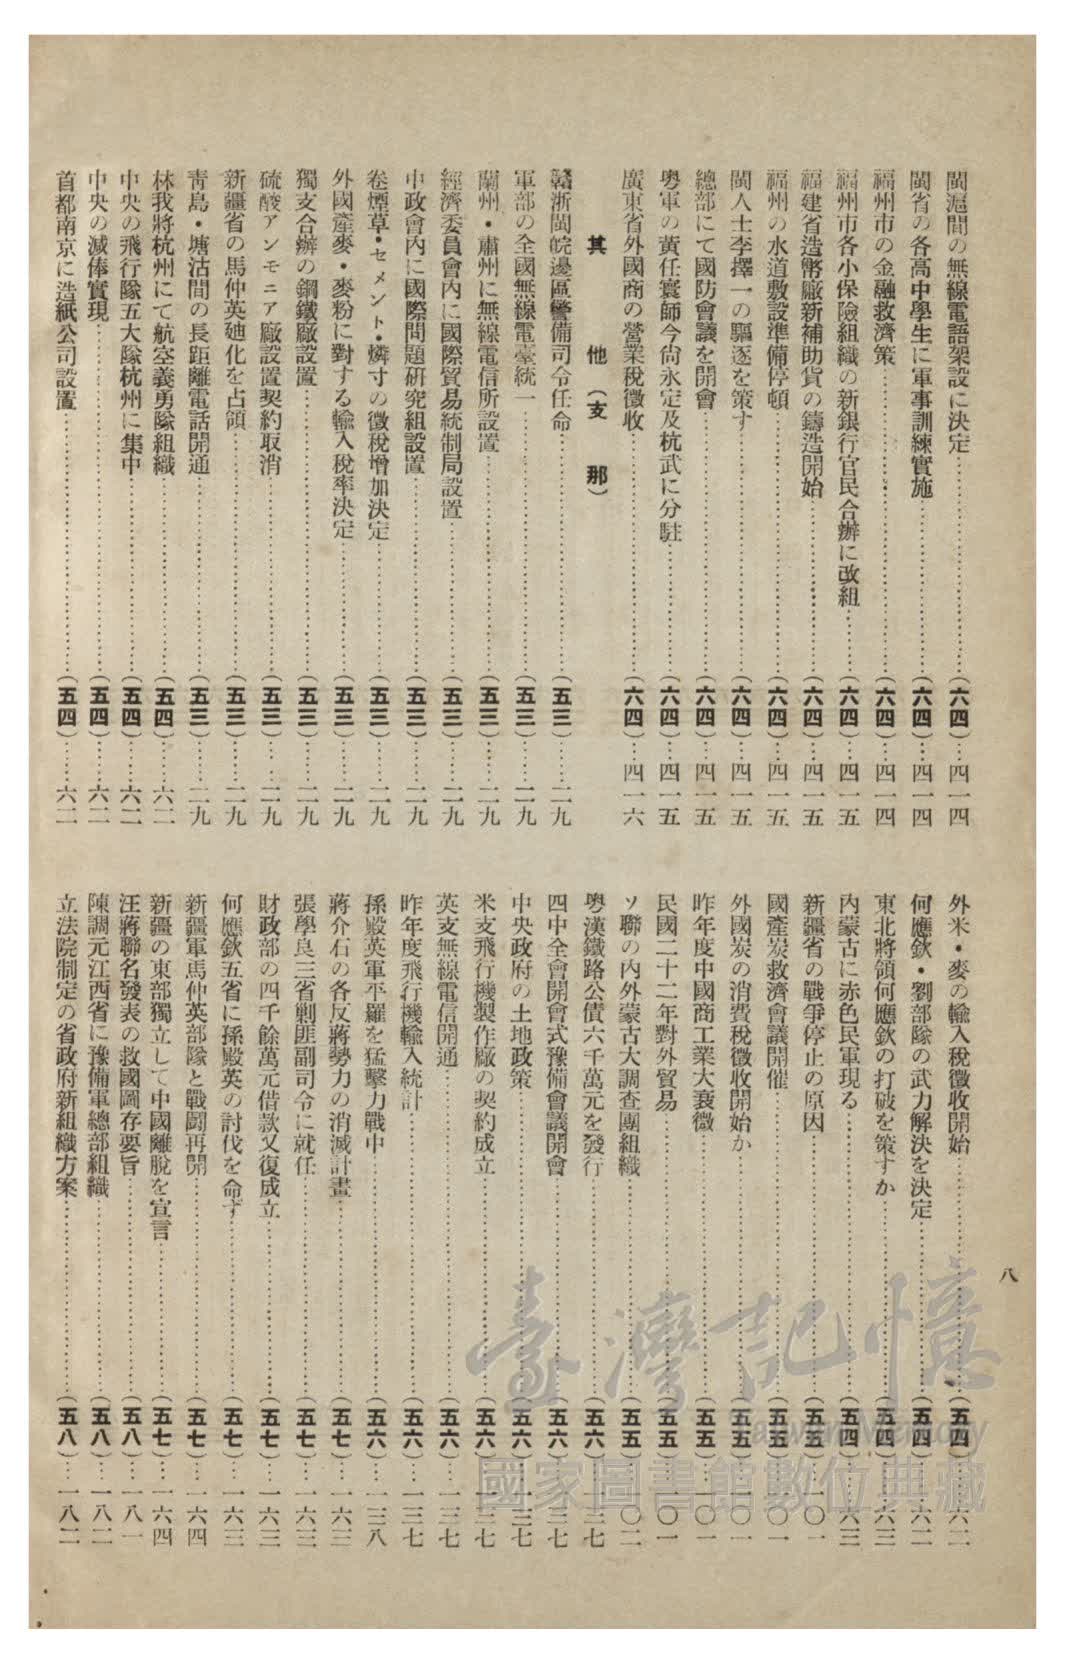 閩滬間の無線電語架設に決定……(六四)…四一四
閩省の各高中學生に軍事訓練實施……(六四)…四一四
福州市の金融救濟策……(六四)…四一四
福州市各小保險組織の新銀行官民合辦に改組……(六四)…四一五
福建省造幣廠新補助貨の鑄造開始……(六四)…四一五
福州の水道敷設準備停頓……(六四)…四一五
閩人士李擇一の驅逐を策す……(六四)…四一五
總部にて國防會議を開會……(六四)…四一五
粤軍の黃任寰師今尙永定及杭武に分駐……(六四)…四一五
廣東省外國商の營業稅徵收……(六四)…四一六
其他(支那)
贛浙閩皖邊區警備司令任命……(五三)…二九
軍部の全國無線電臺統一……(五三)…二九
蘭州・肅州に無線電信所設置……(五三)…二九
經濟委員會內に國際貿易統制局設置……(五三)…二九
中政會內に國際問題硏究組設置……(五三)…二九
卷煙草・セメント・燐寸の徵稅增加決定……(五三)…二九
外國產麥・麥粉に對する輸入稅率決定……(五三)…二九
獨支合辦の鋼鐵廠設置……(五三)…二九
硫酸アンモニア廠設置契約取消……(五三)…二九
新疆省の馬仲英廸化を占領……(五三)…二九
靑島・塘沽間の長距離電話開通……(五三)…二九
林我將杭州にて航空義勇隊組織……(五四)…六二
中央の飛行隊五大隊杭州に集中……(五四)…六二
中央の減俸實現……(五四)…六二
首都南京に造紙公司設置……(五四)…六二
外米・麥の輸入稅徵收開始……(五四)…六二
何應欽・劉部隊の武力解決を決定……(五四)…六二
東北將領何應欽の打破を策すか……(五四)…六三
內蒙古に赤色民軍現る……(五四)…六三
新疆省の戰爭停止の原因……(五五)…一〇一
國產炭救濟會議開催……(五五)…一〇一
外國炭の消費稅徵收開始か……(五五)…一〇一
昨年度中國商工業大衰微……(五五)…一〇一
民國二十二年對外貿易……(五五)…一〇一
ソ聯の內外蒙古大調查團組織……(五五)…一〇二
粤漢鐵路公債六千萬元を發行……(五六)…一三七
四中全會開會式豫備會議開會……(五六)…一三七
中央政府の土地政策……(五六)…一三七
米支飛行機製作廠の契約成立……(五六)…一三七
英支無線電信開通……(五六)…一三七
昨年度飛行機輸入統計……(五六)…一三七
孫殿英軍平羅を猛擊力戰中……(五六)…一三八
蔣介石の各反蔣勢力の消滅計畫……(五七)…一六三
張學良三省剿匪副司令に就任……(五七)…一六三
財政部の四千餘萬元借款又復成立……(五七)…一六三
何應欽五省に孫殿英の討伐を命ず……(五七)…一六三
新疆軍馬仲英部隊と戰鬪再開……(五七)…一六四
新疆の東部獨立して中國離脫を宣言……(五七)…一六四
汪蔣聯名發表の救國圖存要旨……(五八)…一八一
陳調元江西省に豫備軍總部組織……(五八)…一八二
立法院制定の省政府新組織方案……(五八)…一八二
八
臺灣記憶
Taiwan Memory
國家圖書館數位典藏